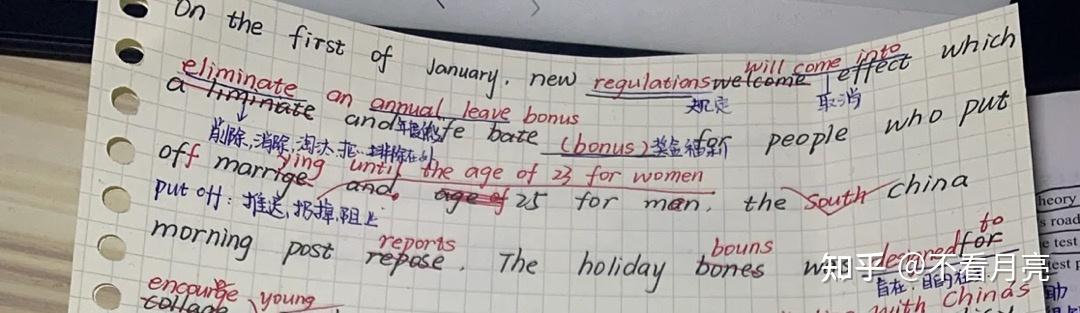 On the first of January, new regulations welcome effect which
will come into
eliminate an annual leave bonus
a liminate and fe bate (bonus) for people who put
规定 取消
削除、消除、淘汰
off marrige
ying until the age of 23 for women
and age of 25 for man, the South China
put off: 推迟、扔掉、阻止
morning post repose. The holiday bones
reports
bouns
desigred for
to
encourge young
collage
with Chinas
知乎 @不看月亮
heory
s road
e test
test p
助